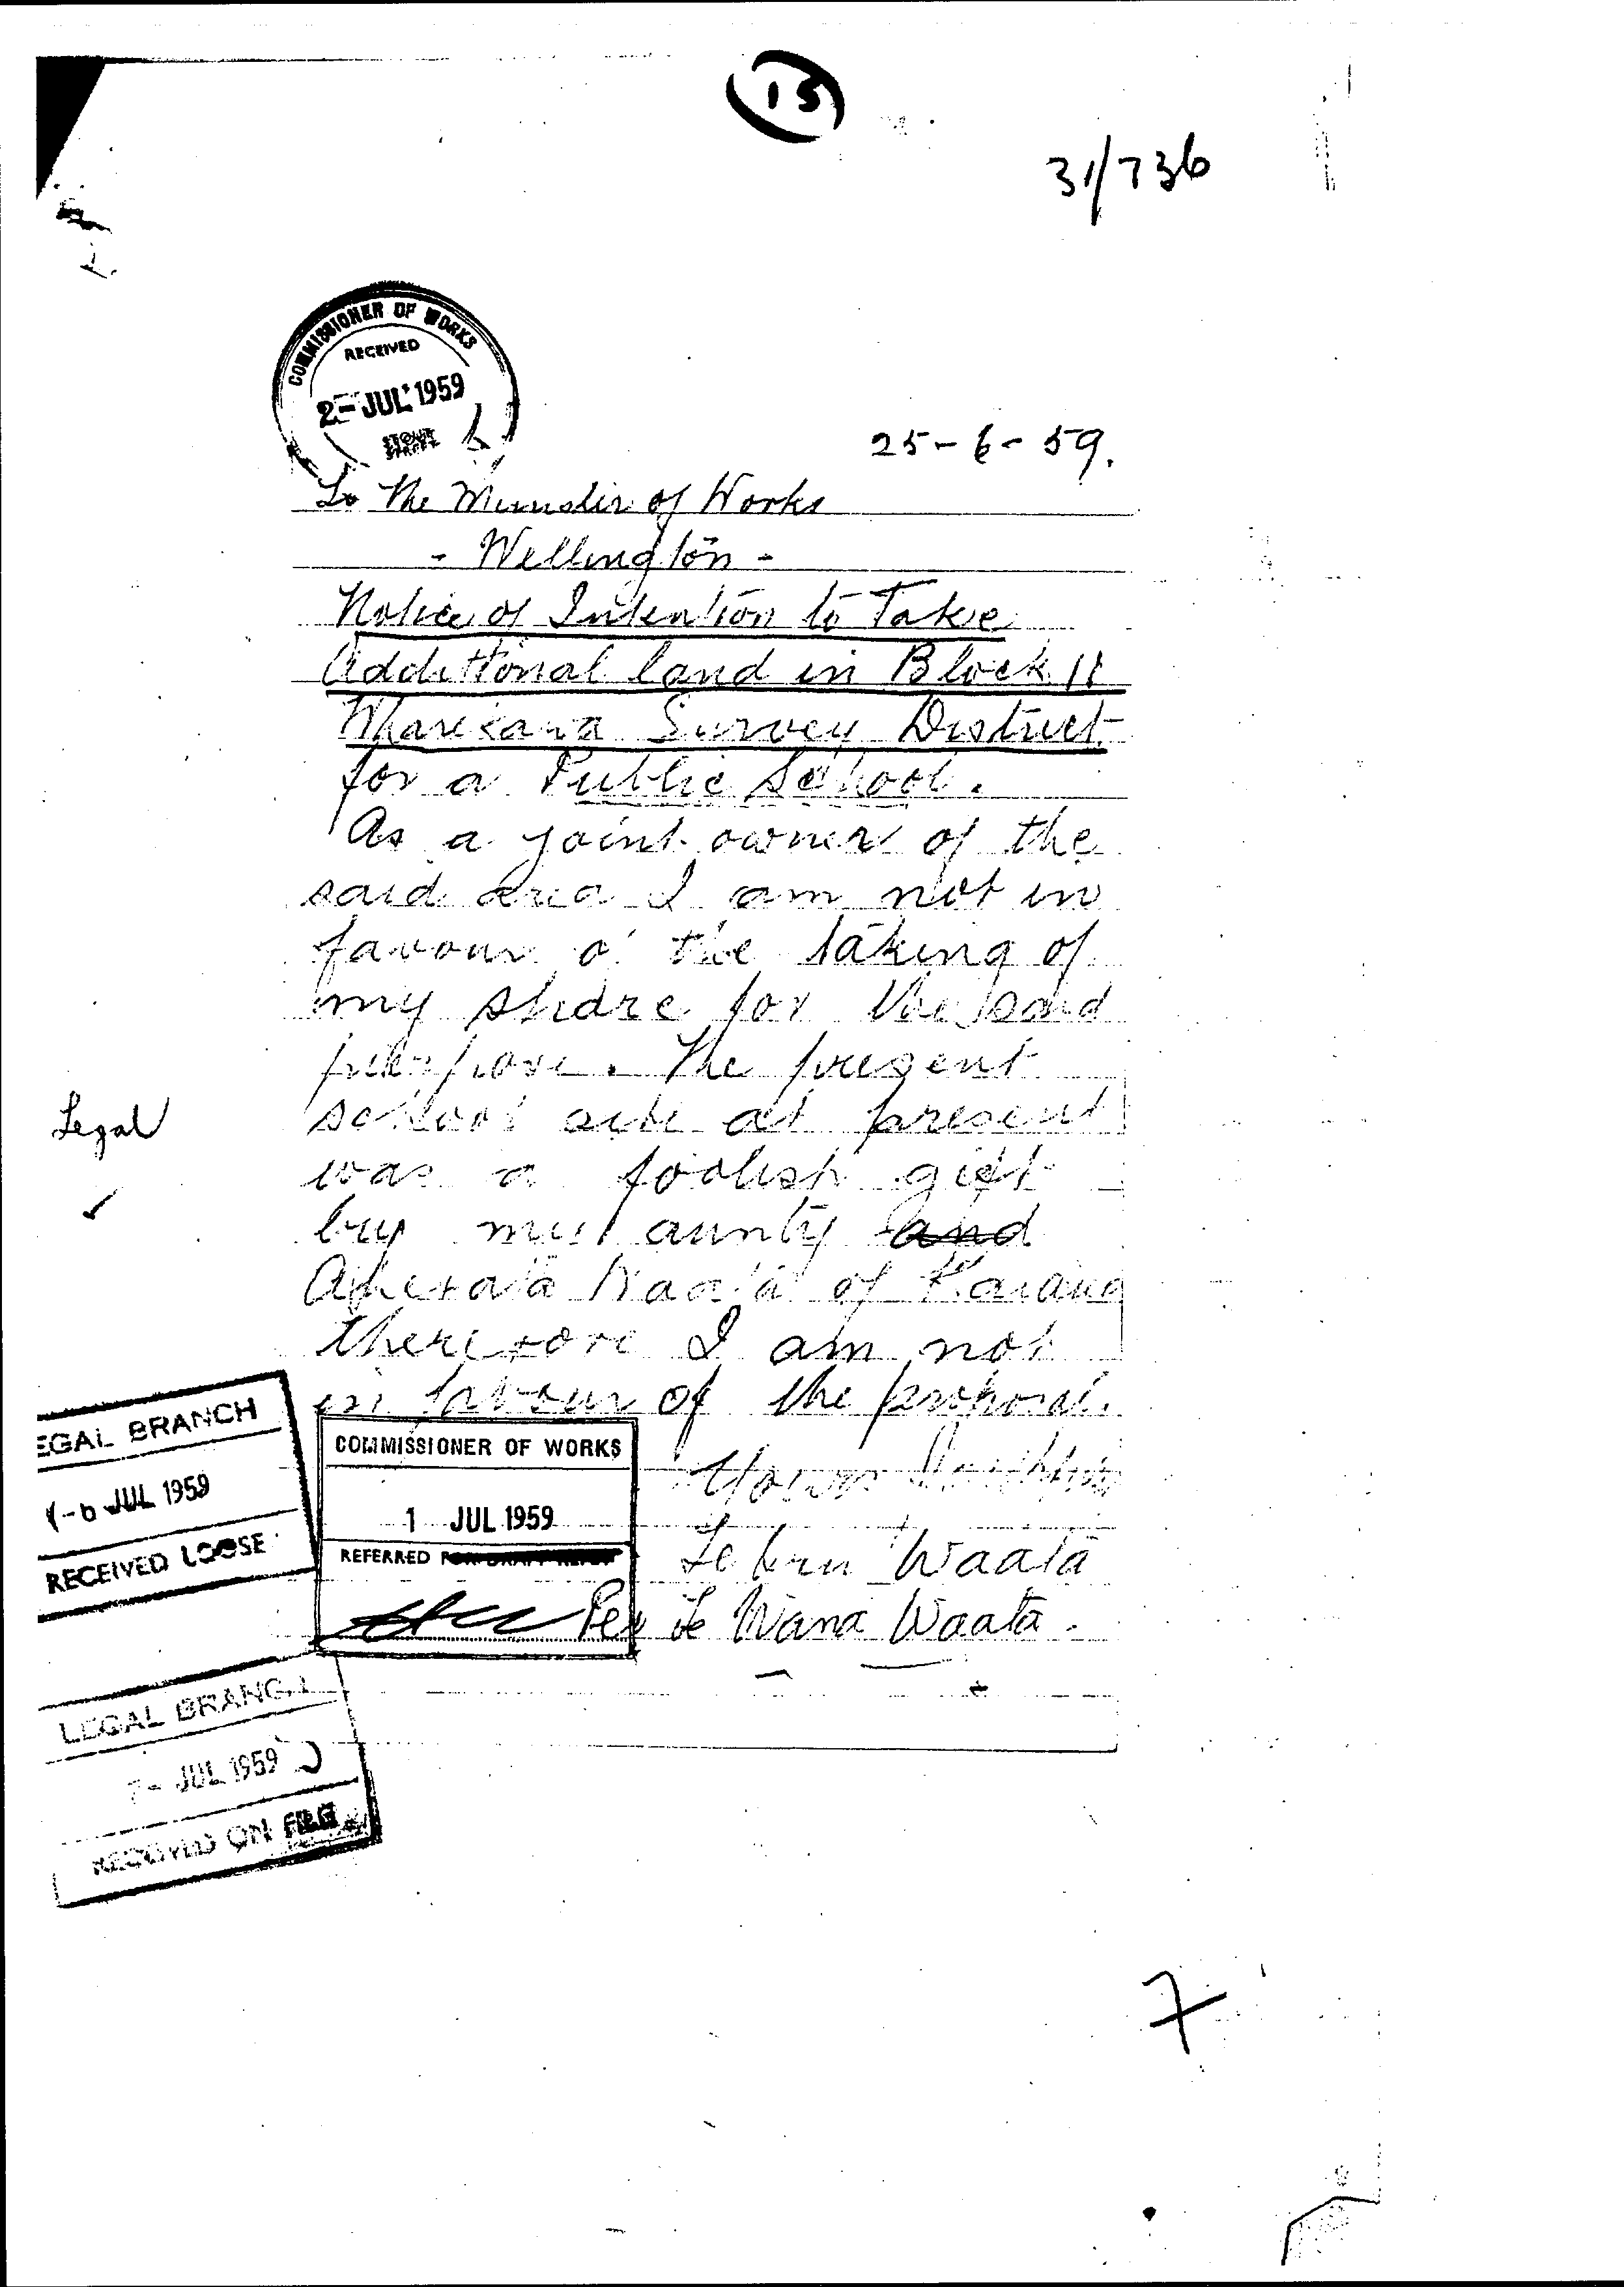 15
31/736
COMMISSIONER OF WORKS
RECEIVED
2-JUL 1959
STOUT
STREET
25-6-59.
To The Minister of Works
- Wellington -
Notice of Intention to Take
Additional land in Block 11
Wharekawa Survey District
for a Public School.
As a joint owner of the
said area I am not in
favour of the taking of
my share for the said
purpose. The present
school site at present
was a foolish gift
by my aunty and
Aherata Waata of Kaiaua
therefore I am not
in favour of the proposal.
Yours faithfully
Waata
Per Te Wana Waata.
Legal
LEGAL BRANCH
JUL 1959
RECEIVED LOOSE
COMMISSIONER OF WORKS
1 JUL 1959
REFERRED FOR DRAFT REPLY
LEGAL BRANCH
7- JUL 1959
RECEIVED ON FILE
7